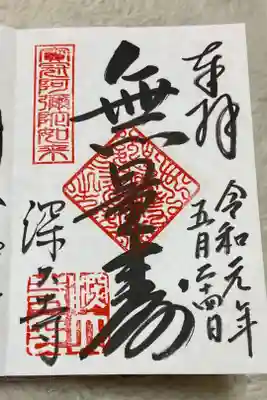 奉拝
令和元年
五月二十四日
無量寿
寳冠阿彌陀如来
深大寺